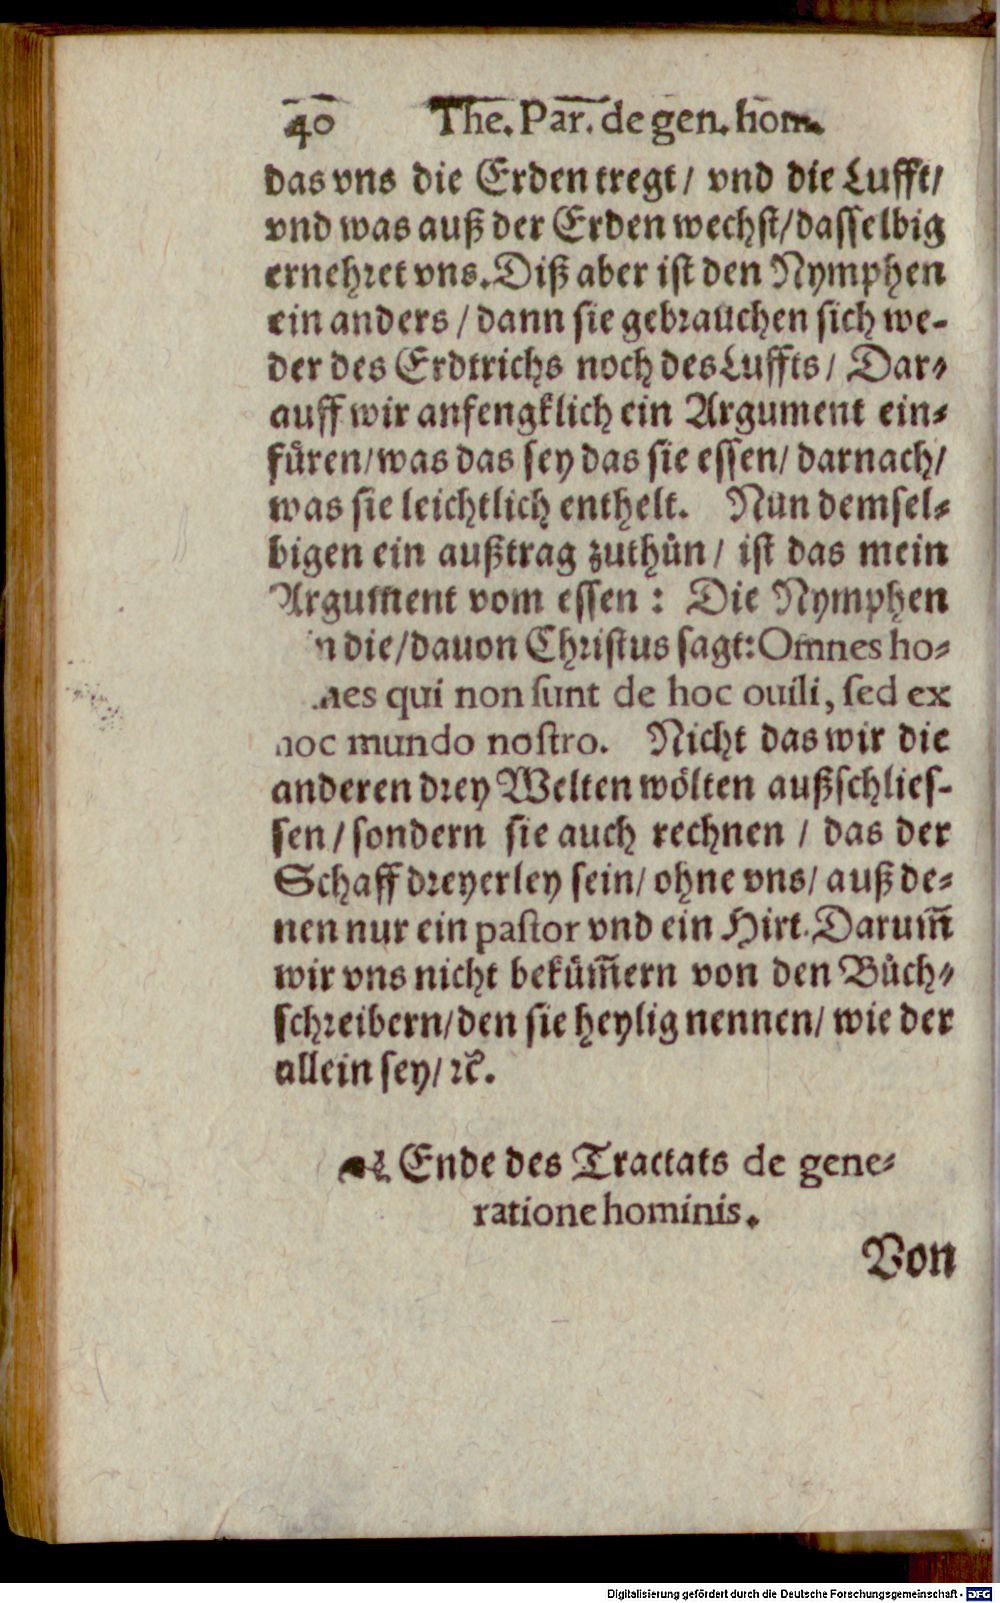 40 The. Par. de gen. hom.
das vns die Erden tregt/ vnd die Lufft/
vnd was auß der Erden wechst/ dasselbig
ernehret vns. Diß aber ist den Nymphen
ein anders / dann sie gebrauchen sich we-
der des Erdtrichs noch des Luffts/ Dar-
auff wir anfengklich ein Argument ein-
füren/ was das sey das sie essen/ darnach/
was sie leichtlich enthelt. Nun demsel-
bigen ein außtrag zuthůn/ ist das mein
Argument vom essen : Die Nymphen
die/ dauon Christus sagt: Omnes ho-
nes qui non sunt de hoc ouili, sed ex
hoc mundo nostro. Nicht das wir die
anderen drey Welten wölten außschlies-
sen / sondern sie auch rechnen / das der
Schaff dreyerley sein/ ohne vns/ auß de-
nen nur ein pastor vnd ein Hirt. Darum̃
wir vns nicht beküm̃ern von den Bůch-
schreibern/ den sie heylig nennen/ wie der
allein sey/ ꝛc̃.
Ende des Tractats de gene-
ratione hominis.
Von
Digitalisierung gefördert durch die Deutsche Forschungsgemeinschaft - DFG